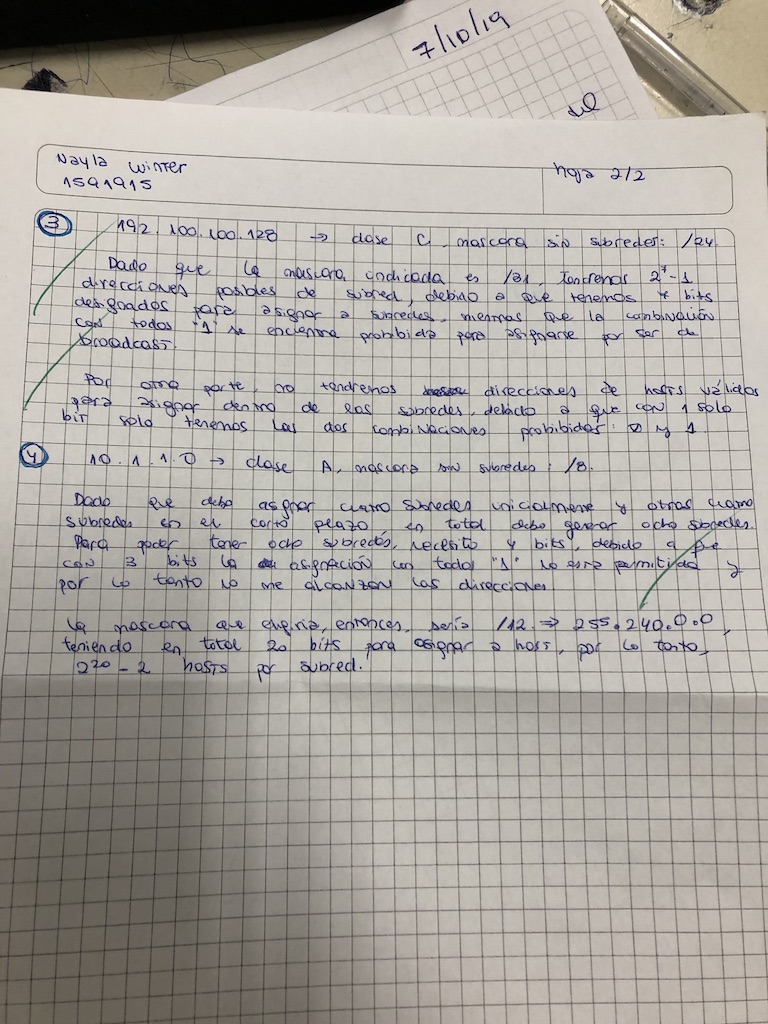 7/10/19
Nayla Winter
hoja 2/2
1591915
3
192.100.100.128 → clase C, mascara sin subredes: /24
Dado que la mascara indicada es /31, tendremos 2⁷-1
direcciones posibles de subred, debido a que tenemos 7 bits
designados para asignar a subredes, mientras que la combinación
con todos "1" se encuentra prohibida para asignarse por ser de
broadcast.
Por otra parte, no tendremos direcciones de hosts válidos
para asignar dentro de las subredes, debido a que con 1 solo
bit solo tenemos las dos combinaciones prohibidas: 0 y 1
4
10.1.1.0 → clase A, mascara sin subredes: /8.
Dado que debo asignar cuatro subredes inicialmente y otras cuatro
subredes en el corto plazo, en total debo generar ocho subredes.
Para poder tener ocho subredes, necesito 4 bits, debido a que
con 3 bits la asignación con todos "1" no está permitida y
por lo tanto no me alcanzan las direcciones
La mascara que elegiria, entonces, sería /12 ⇒ 255.240.0.0,
teniendo en total 20 bits para asignar a host, por lo tanto,
2²⁰ - 2 hosts por subred.